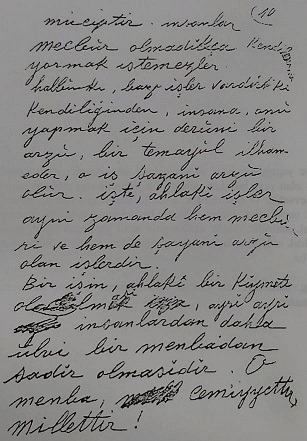 (10
muciptir. insanlar
mecbur olmadikça kendilerini
yormak istemezler.
halbuki, bazı işler vardır ki
kendiliğinden, insana, onu
yapmak için derûni bir
arzu, bir temayül ilham
eder, o iş şayanı arzu
olur. işte, ahlakî işler
ayni zamanda hem mecbu-
ri ve hem de şayani arzu
olan işlerdir.
Bir işin, ahlakî bir kiymeti
olmasi, ayri ayri
insanlardan daha
ülvi bir menbadan
sadir olmasidir. O
menba, cemiyyettir,
Millettir!